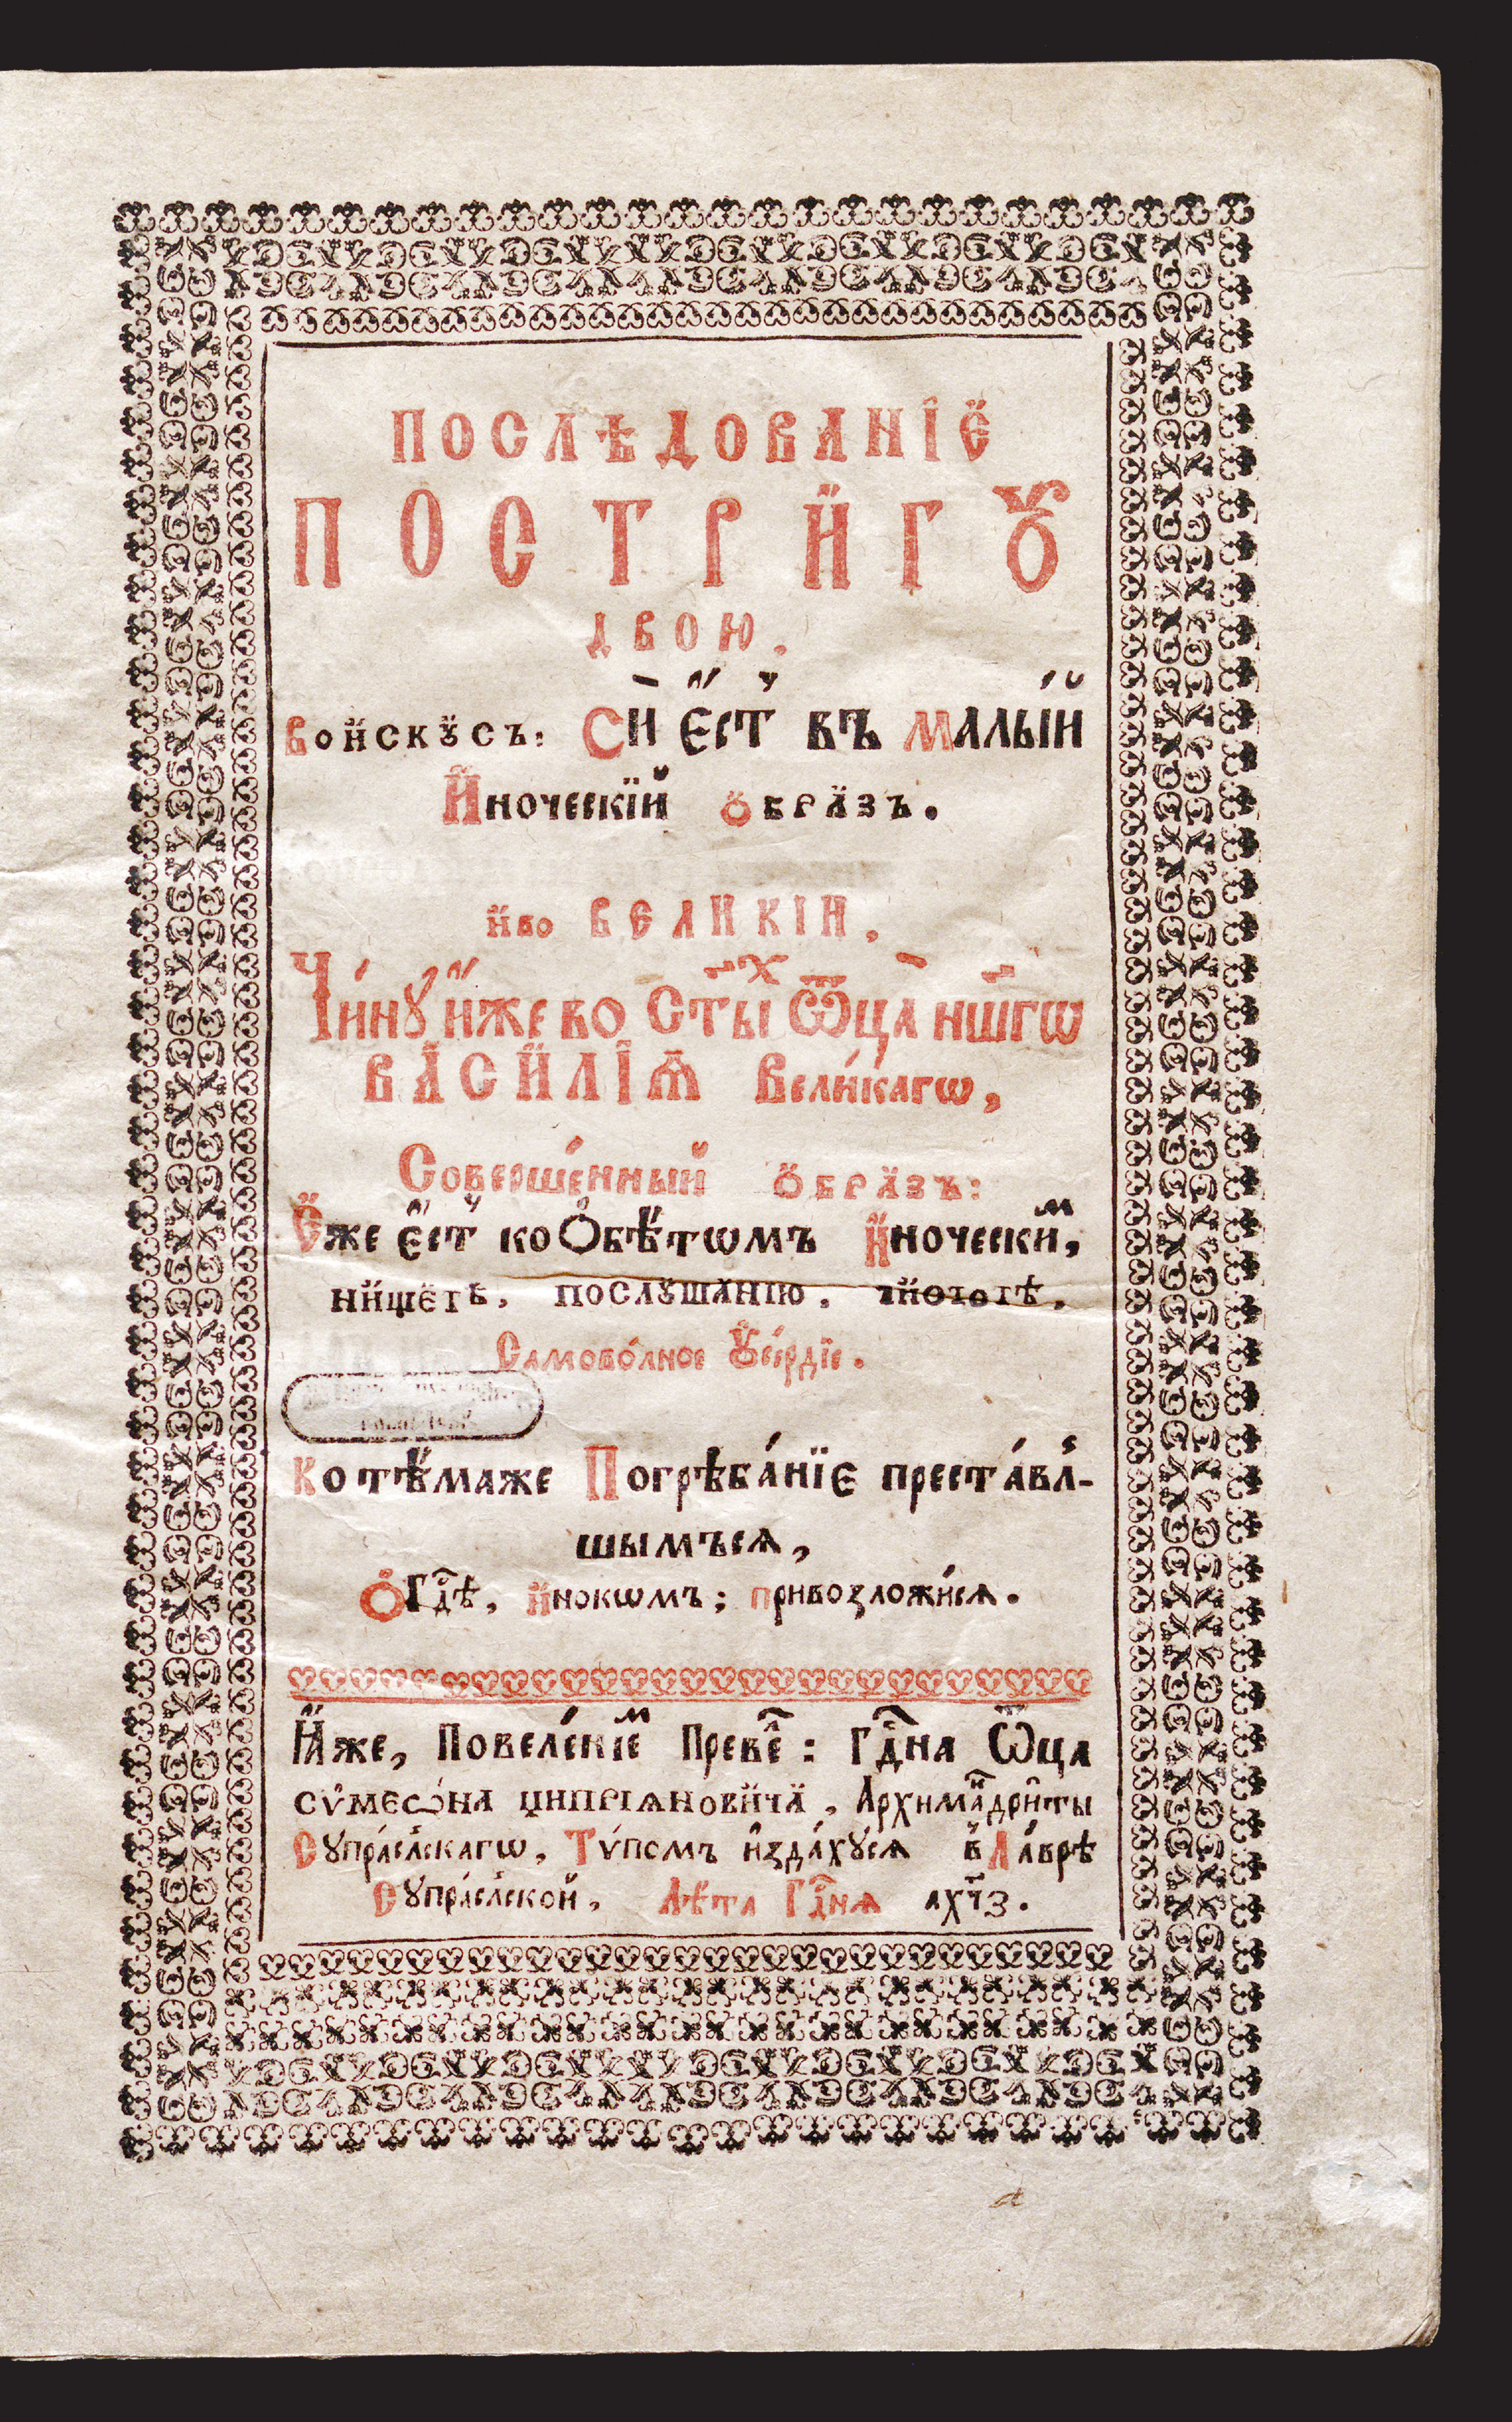 ПОСЛѢДОВАНЇЕ
ПОСТРИГꙊ
ДВОЮ.
Воискꙋсъ: Си́ Є҆́ст҆ въ Малы́й
И҆ноческїй Ѻбразъ.
иво ВЕЛИКІИ,
Чи́нꙋ и҆́же во Ст҃ы́ⷯ Ѿца̀ нш҃гѡ
ВАСИЛІѦ Вели́кагѡ,
Соверше́нный Ѻбразъ:
Єже є҆́ст҆ ко Ѻбѣ́тѡмъ И҆ночески́ⷨ,
нищетѣ, послꙋшанїю, чистотѣ,
Самово́лное Ꙋсе́рдїе.
Ко тѣ́маже Погрѣба́нїє преста́вл-
шымъсѧ,
Ѻ Гдⷭ҇ѣ, И҆нокѡмъ; привозложи́сѧ.
Ꙗ҆́же, Повеле́нїеⷨ Преве́ⷧ: Гдⷭ҇на Ѿца
Сѷмеѡ́на Ципріѧновича, Архима́ⷩдриты
Сꙋпра́слскагѡ, Тѵ́помъ и҆зда́хꙋсѧ в Ла́врѣ
Сꙋпра́слской, Лѣ́та Гдⷭ҇нѧ ахч҃з.